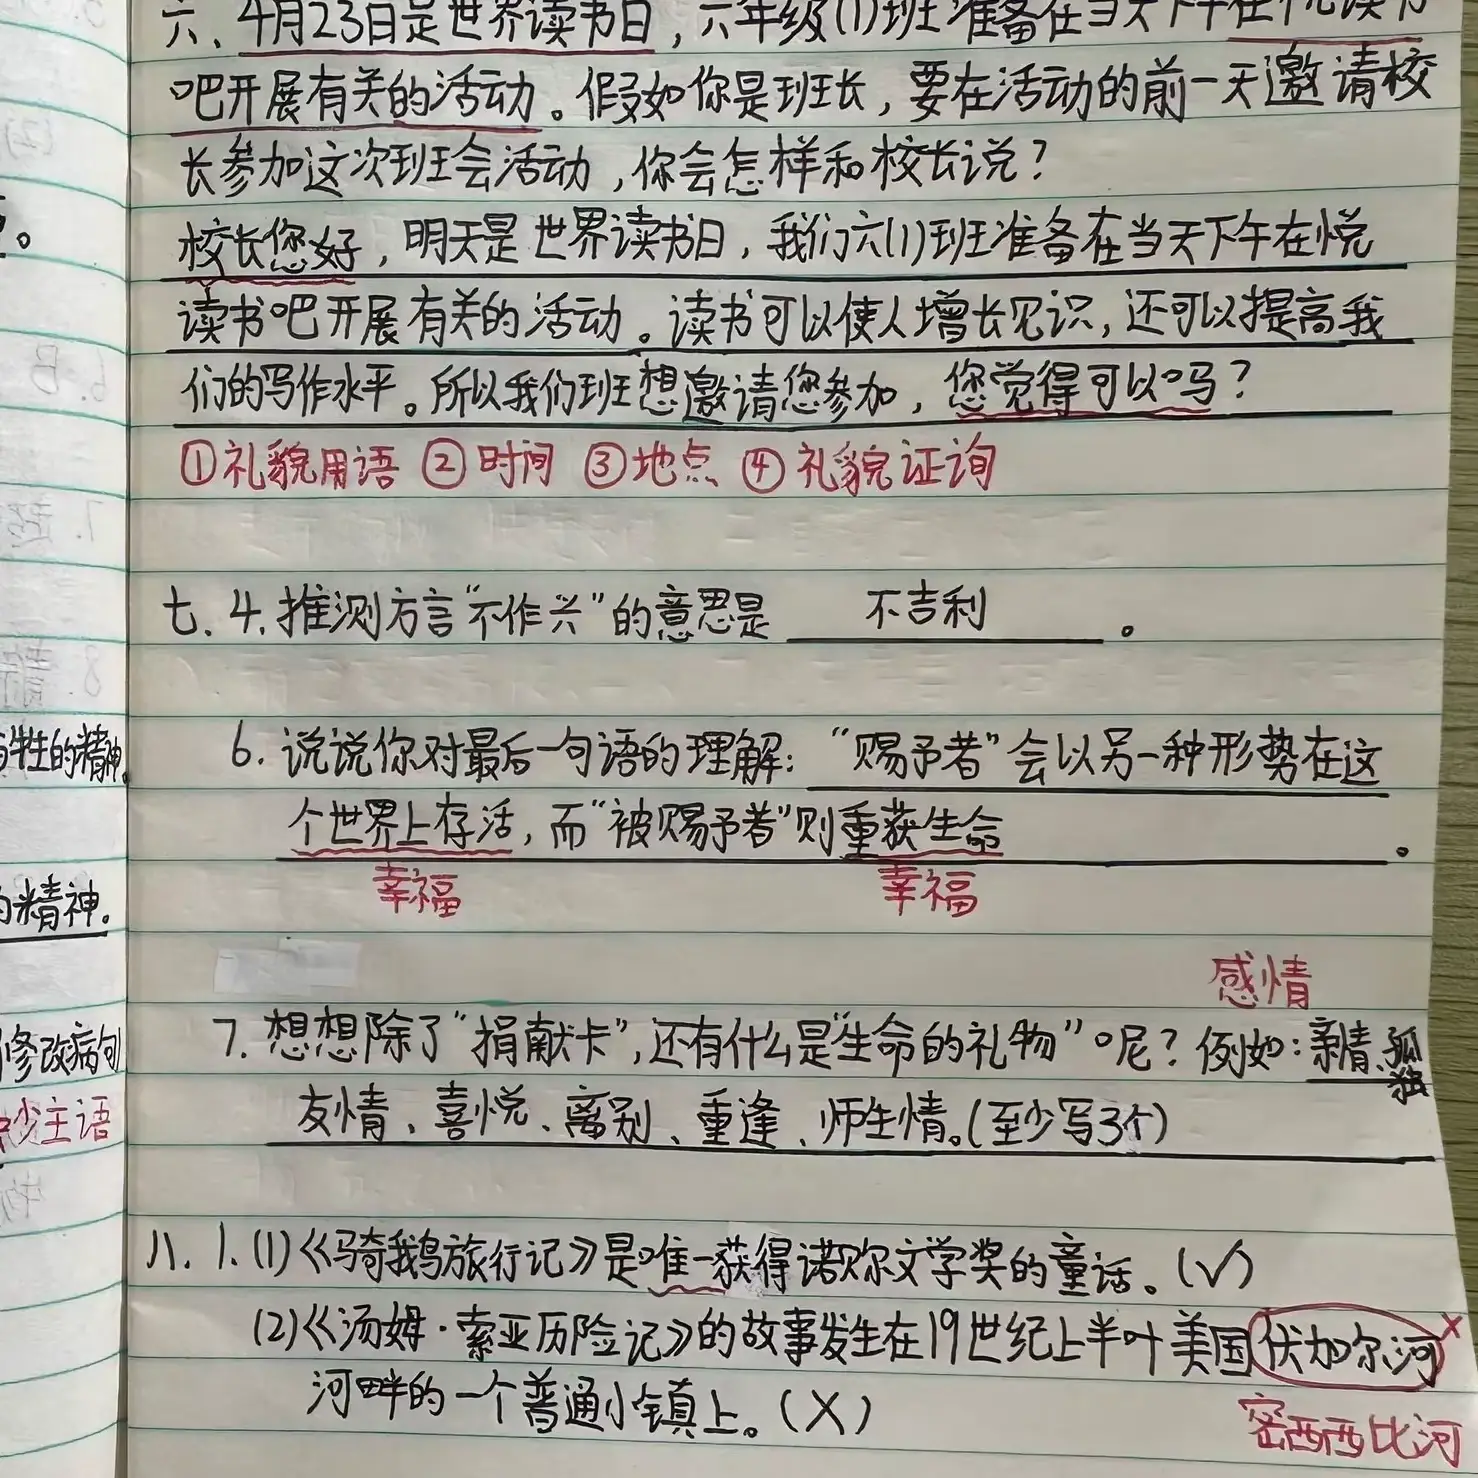 六、4月23日是世界读书日，六年级(1)班准备在当天下午在悦读书
吧开展有关的活动。假如你是班长，要在活动的前一天邀请校
长参加这次班会活动，你会怎样和校长说？
校长您好，明天是世界读书日，我们六(1)班准备在当天下午在悦
读书吧开展有关的活动。读书可以使人增长见识，还可以提高我
们的写作水平。所以我们班想邀请您参加，您觉得可以吗？
①礼貌用语 ②时间 ③地点 ④礼貌证询
七.4.推测方言“不作兴”的意思是 不吉利 。
6.说说你对最后一句语的理解：“赐予者”会以另一种形势在这
个世界上存活，而“被赐予者”则重获生命 。
幸福 幸福
感情
7.想想除了“捐献卡”，还有什么是“生命的礼物”呢？例如：亲情、孤独
友情、喜悦、离别、重逢、师生情。(至少写3个)
八.1.(1)《骑鹅旅行记》是唯一获得诺贝尔文学奖的童话。(√)
(2)《汤姆·索亚历险记》的故事发生在19世纪上半叶美国伏加尔河
河畔的一个普通小镇上。(X)
密西西比河
。
牲的精神
的精神.
修改病句
少主语